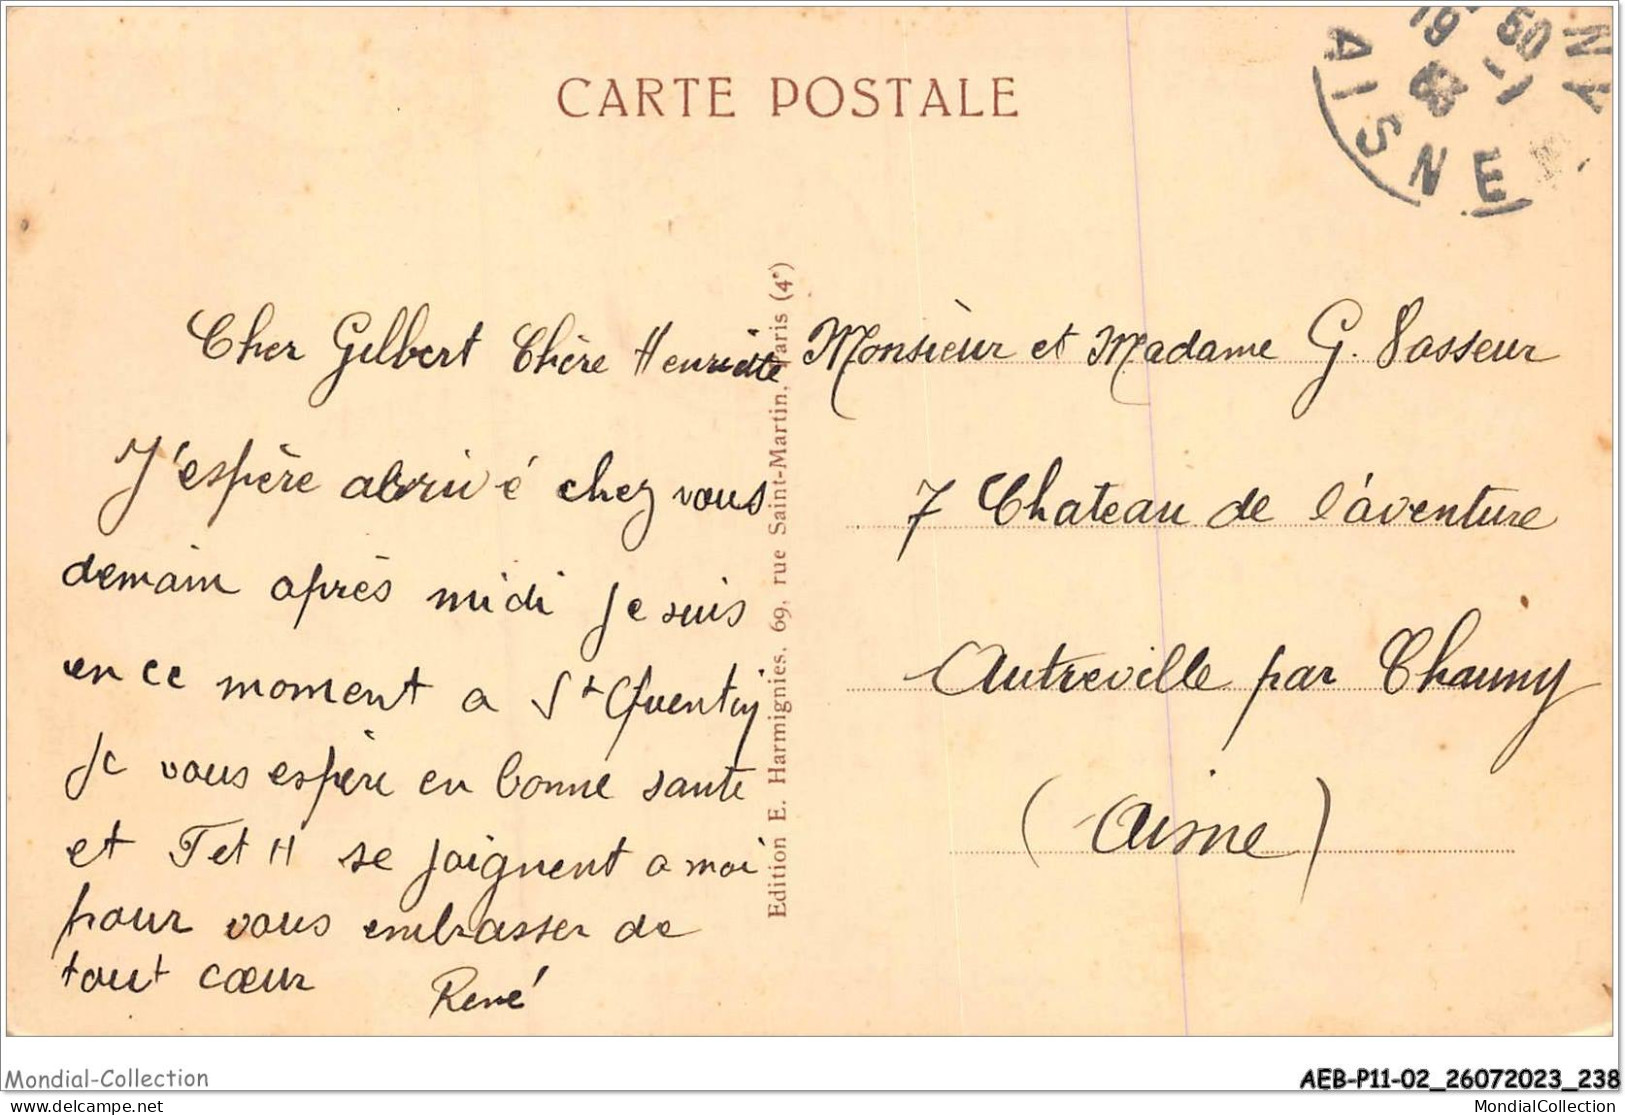 CARTE POSTALE
19 50
-1
AISNE
NY
Cher Gilbert Chère Henriette
J'espère abrrivé chez vous
demain après midi Je suis
en ce moment a St Quentin
Je vous espère en bonne sante
et T et H se joignent a moi
pour vous embrasser de
tout cœur
René
Edition E. Harmignies, 69, rue Saint-Martin, Paris (4°)
Monsieur et Madame G. Vasseur
7 Chateau de l'aventure
Autreville par Chauny
(Aisne)
Mondial-Collection
delcampe.net
AEB-P11-02_26072023_238
MondialCollection